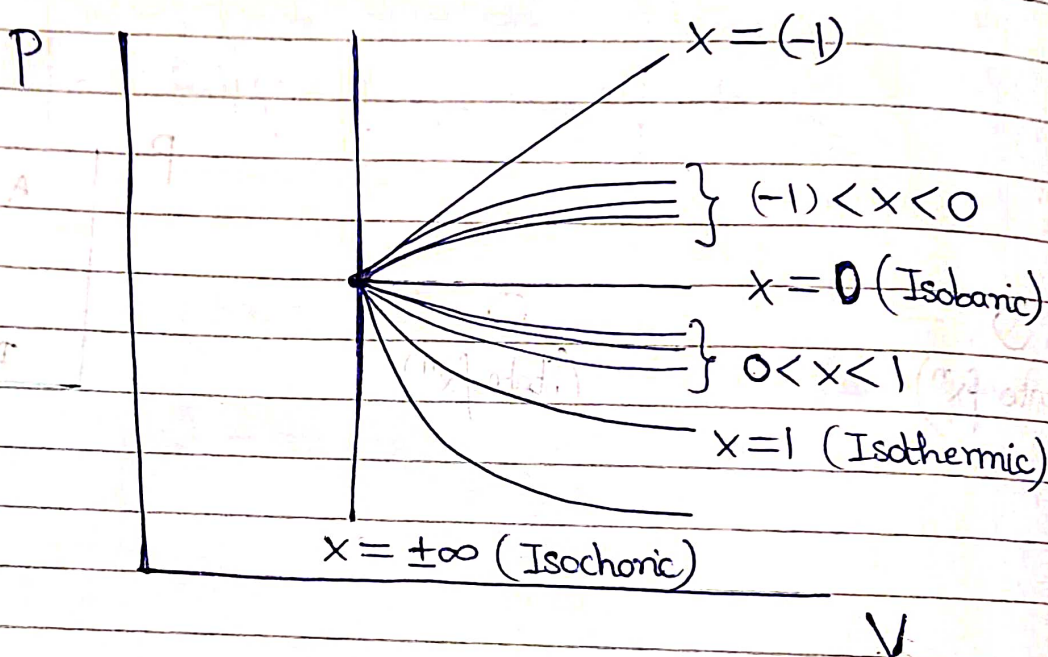 P
x = (-1)
} (-1) < x < 0
x = 0 (Isobaric)
} 0 < x < 1
x = 1 (Isothermic)
x = ±∞ (Isochoric)
V